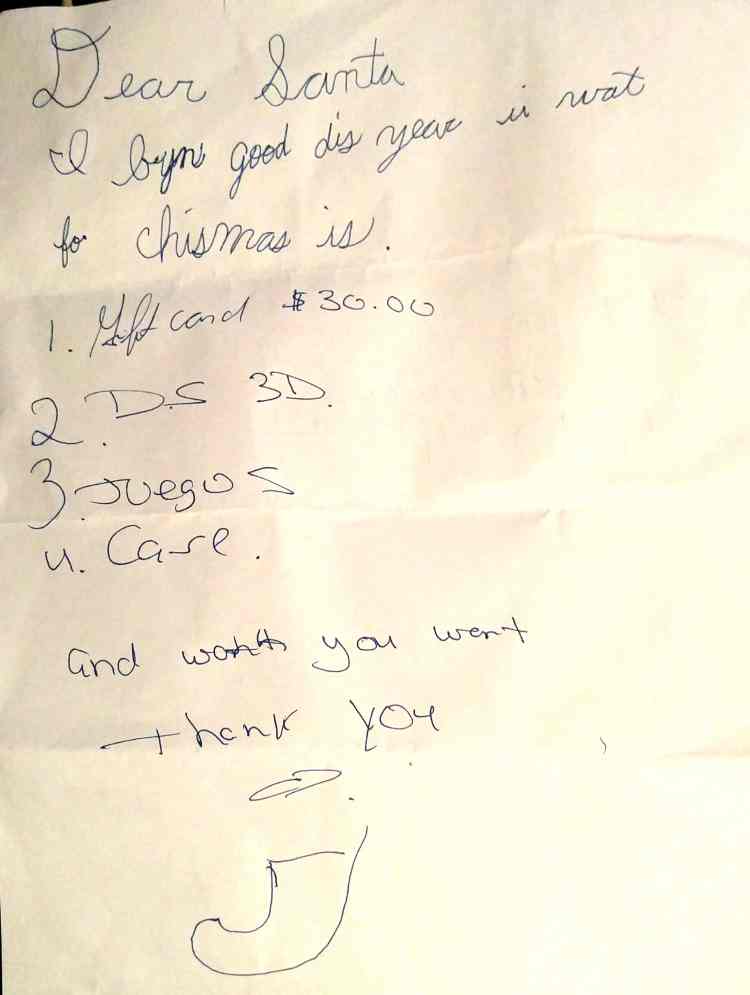 Dear Santa
I byn good dis year ii wat
for chismas is.
1. Gift card $30.00
2. D.S 3D.
3. Juegos
4. Case.
and you want
thank you